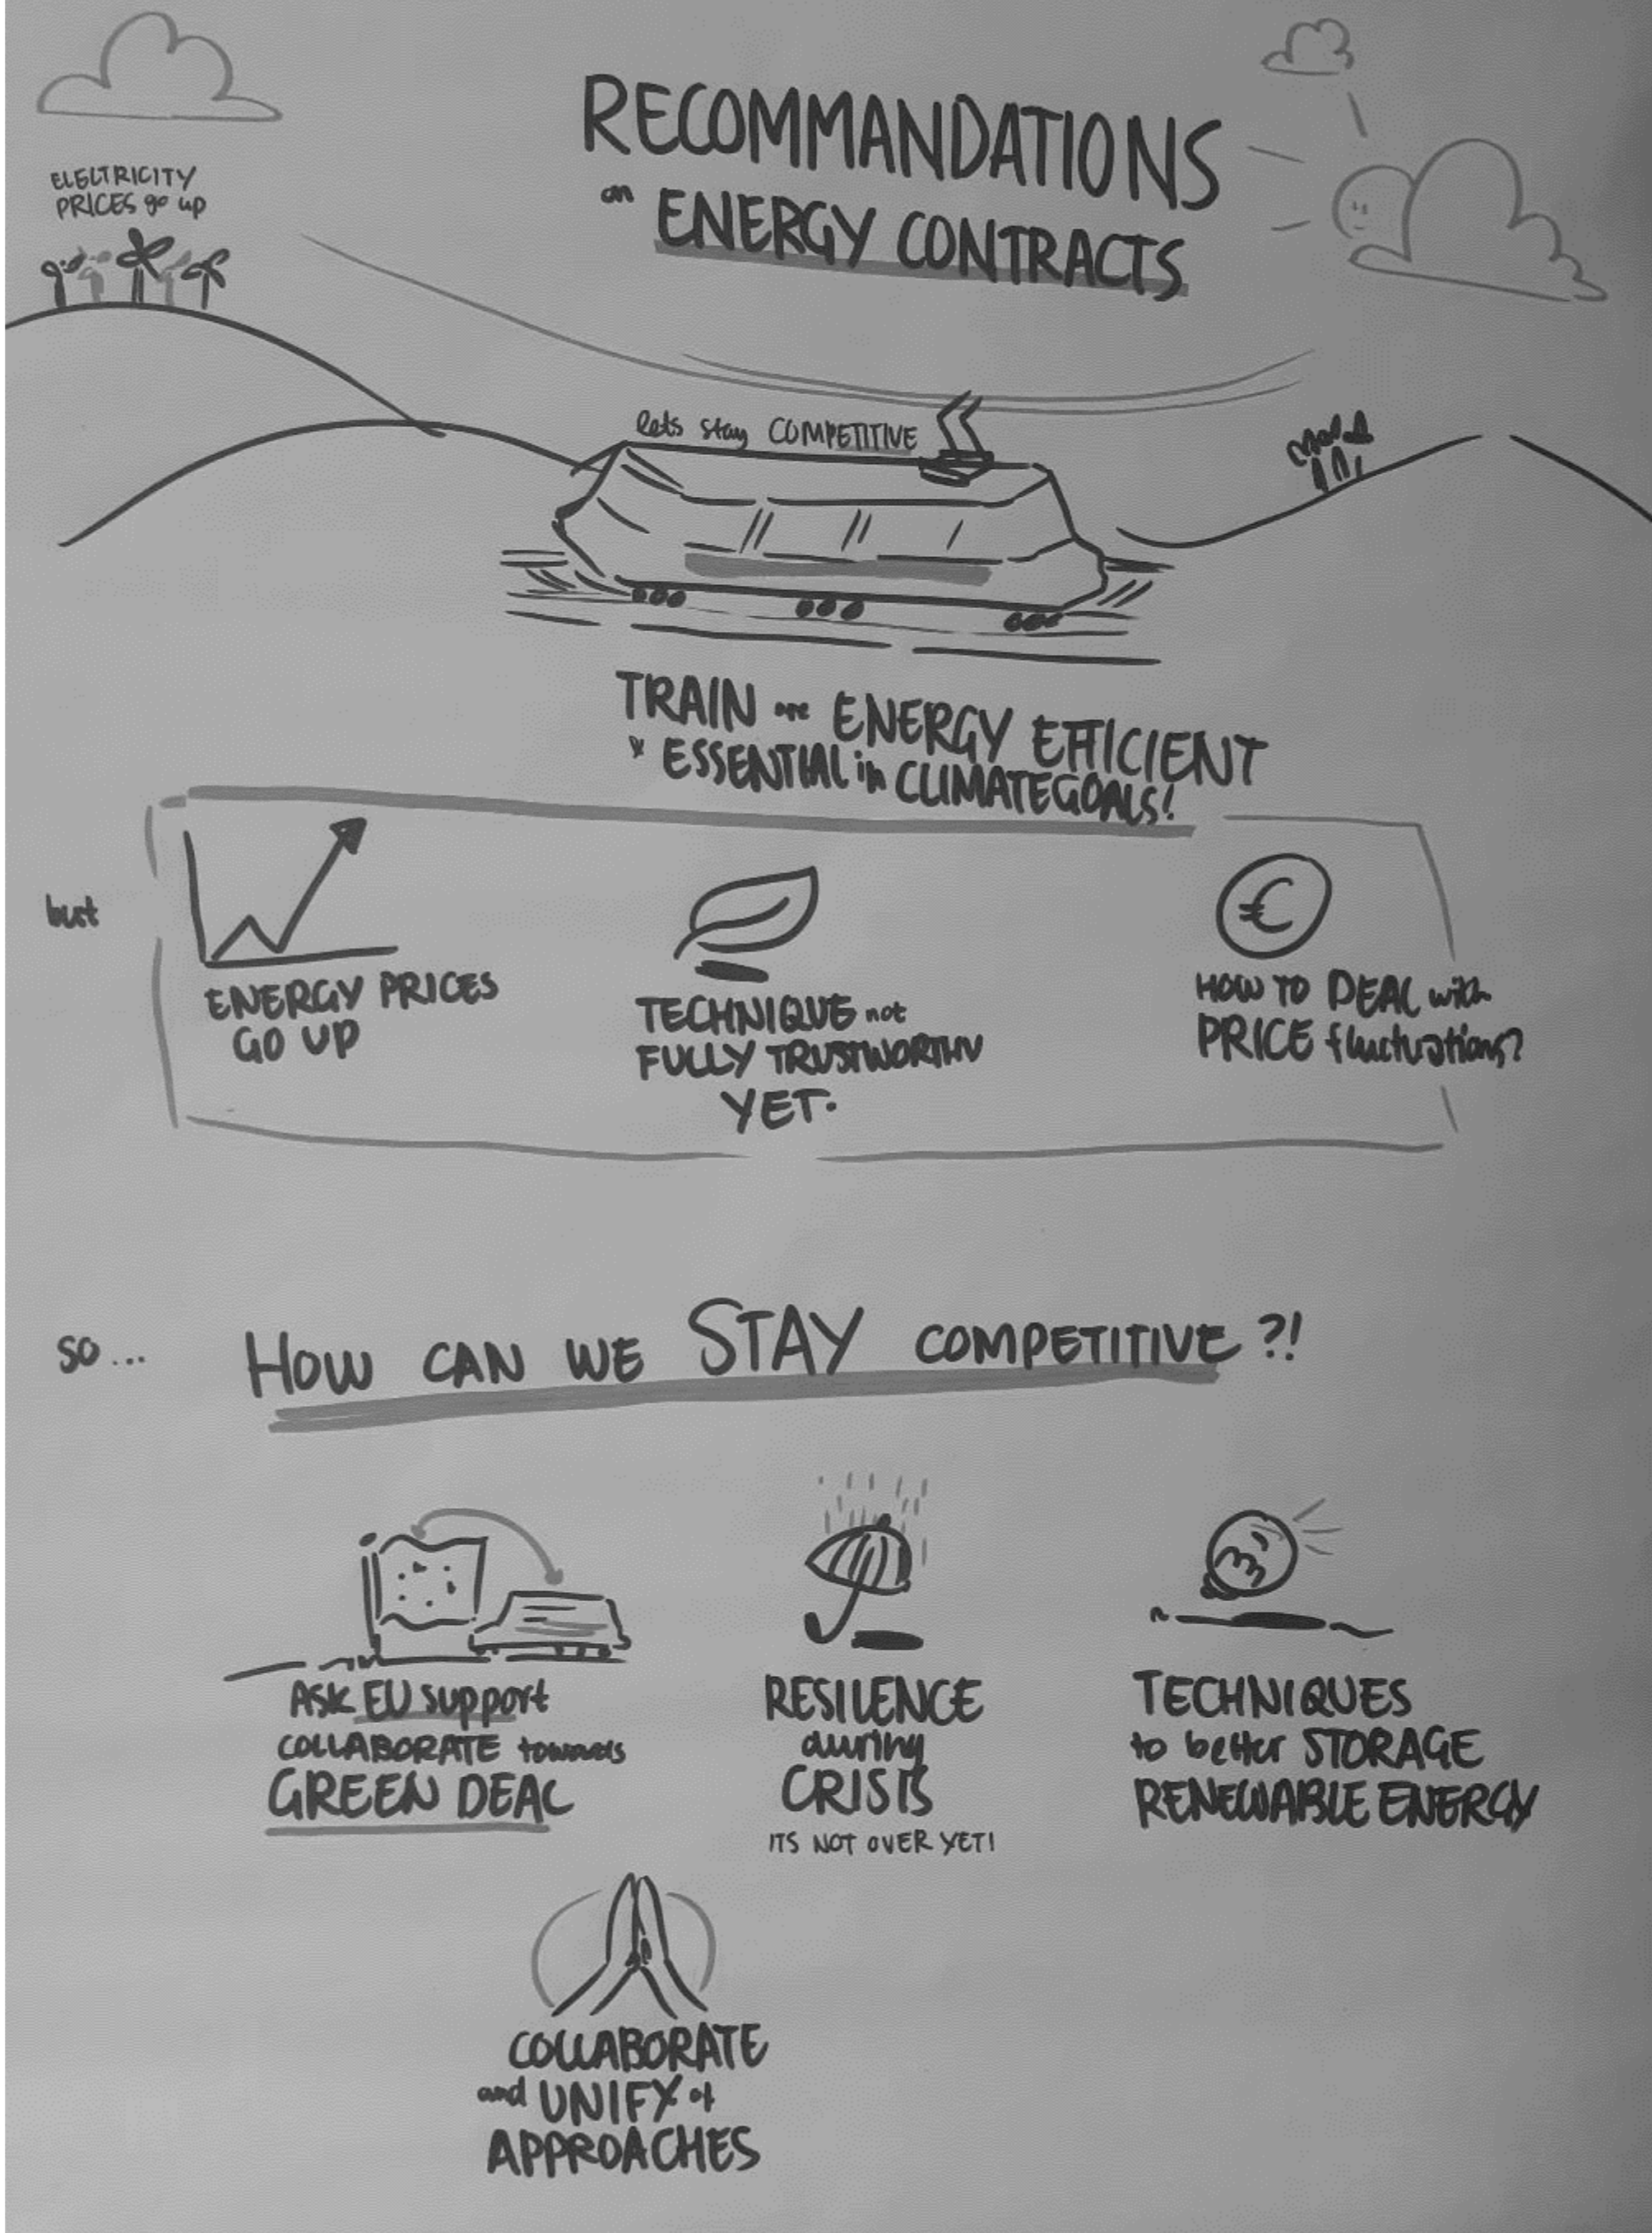 RECOMMANDATIONS
on ENERGY CONTRACTS
ELECTRICITY
PRICES go up
lets stay COMPETITIVE
TRAIN are ENERGY EFFICIENT
& ESSENTIAL in CLIMATEGOALS!
but
ENERGY PRICES
GO UP
TECHNIQUE not
FULLY TRUSTWORTHY
YET.
HOW TO DEAL with
PRICE fluctuations?
so... HOW CAN WE STAY COMPETITIVE?!
ASK EU support
COLLABORATE towards
GREEN DEAL
RESILENCE
during
CRISIS
ITS NOT OVER YET!
TECHNIQUES
to better STORAGE
RENEWABLE ENERGY
COLLABORATE
and UNIFY of
APPROACHES